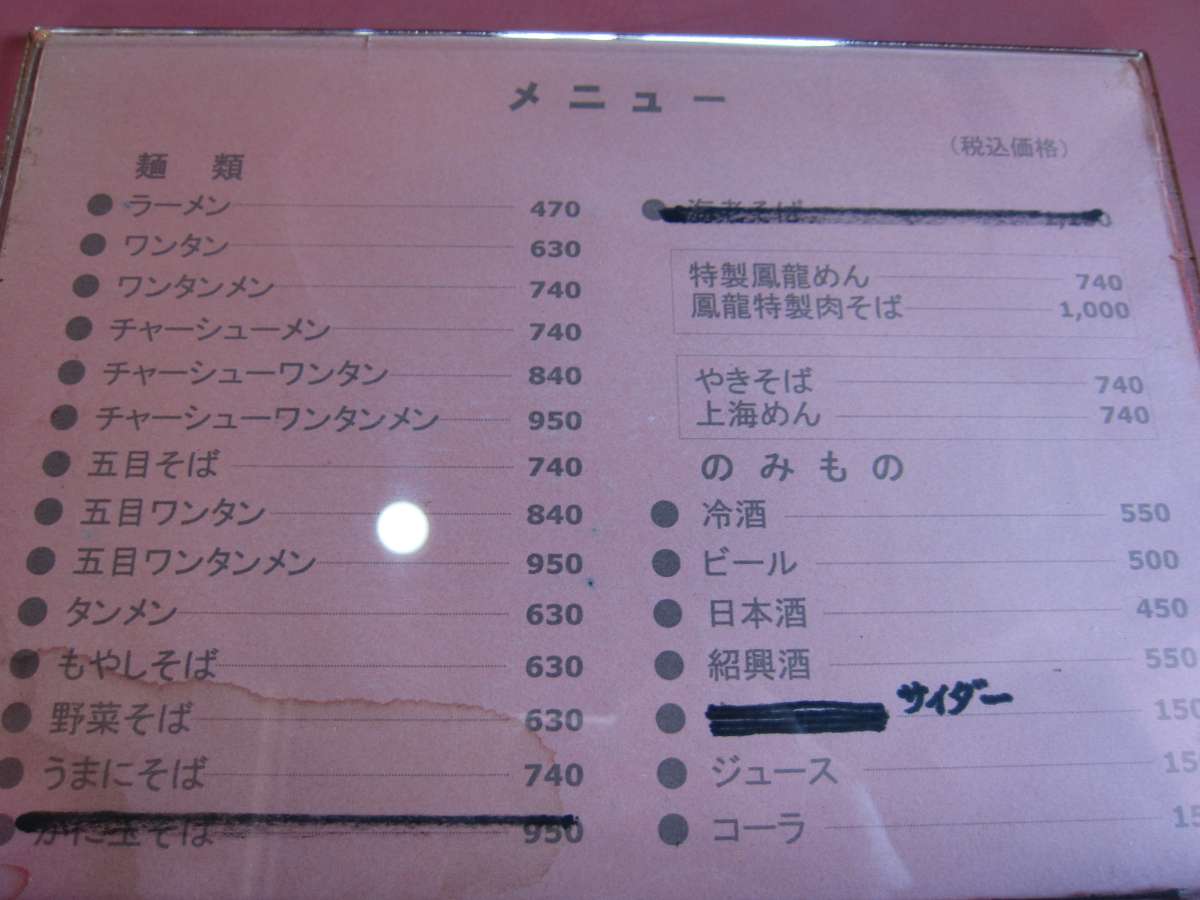 メニュー
(税込価格)
麺 類
ラーメン 470
ワンタン 630
ワンタンメン 740
チャーシューメン 740
チャーシューワンタン 840
チャーシューワンタンメン 950
五目そば 740
五目ワンタン 840
五目ワンタンメン 950
タンメン 630
もやしそば 630
野菜そば 630
うまにそば 740
かに玉そば 950
海老そば
特製鳳龍めん 740
鳳龍特製肉そば 1,000
やきそば 740
上海めん 740
のみもの
冷酒 550
ビール 500
日本酒 450
紹興酒 550
サイダー 150
ジュース 15
コーラ 15